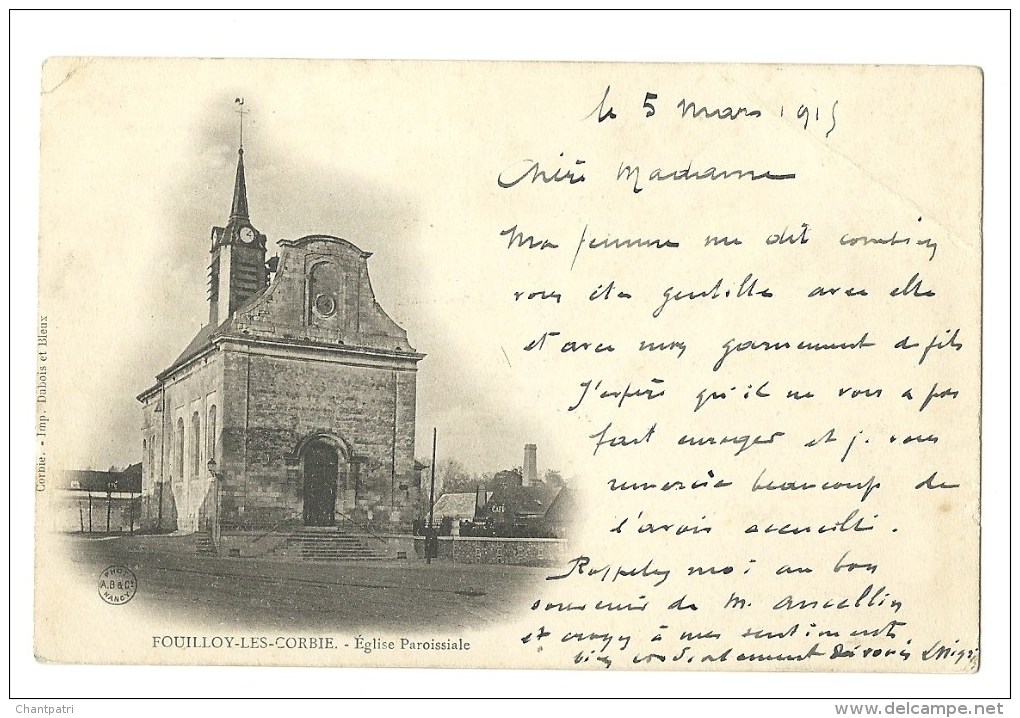 le 5 Mars 1915
Chère Madame
Ma femme me dit combien
vous êtes gentille avec elle
et avec mon garnement de fils
J'espère qu'il ne vous a pas
fait enrager et je vous
remercie beaucoup de
l'avoir accueilli.
Rappelez moi au bon
souvenir de M. Ancellin
et croyez à mes sentiments
bien cordialement dévoués
Corbie. - Imp. Dubois et Bleux
CAFÉ
PHOT
A.B & Cie
NANCY
FOUILLOY-LES-CORBIE. - Église Paroissiale
Chantpatri
www.delcampe.net